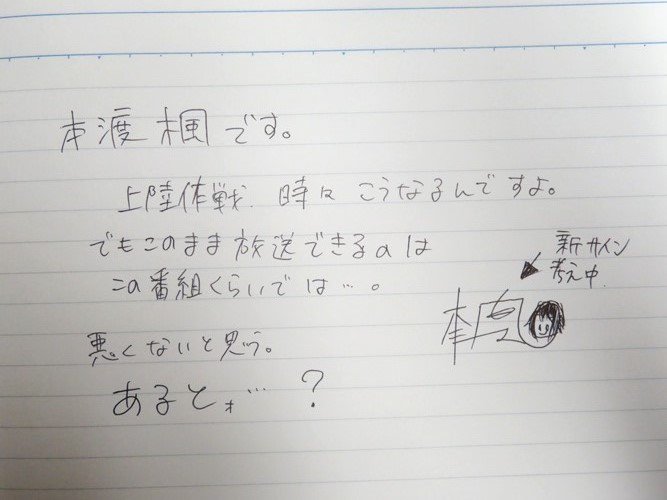 本渡楓です。
上陸作戦、時々こうなるんですよ。
でもこのまま放送できるのは
この番組くらいでは…。
悪くないと思う。
あると、…?
新サイン
考え中。
本渡